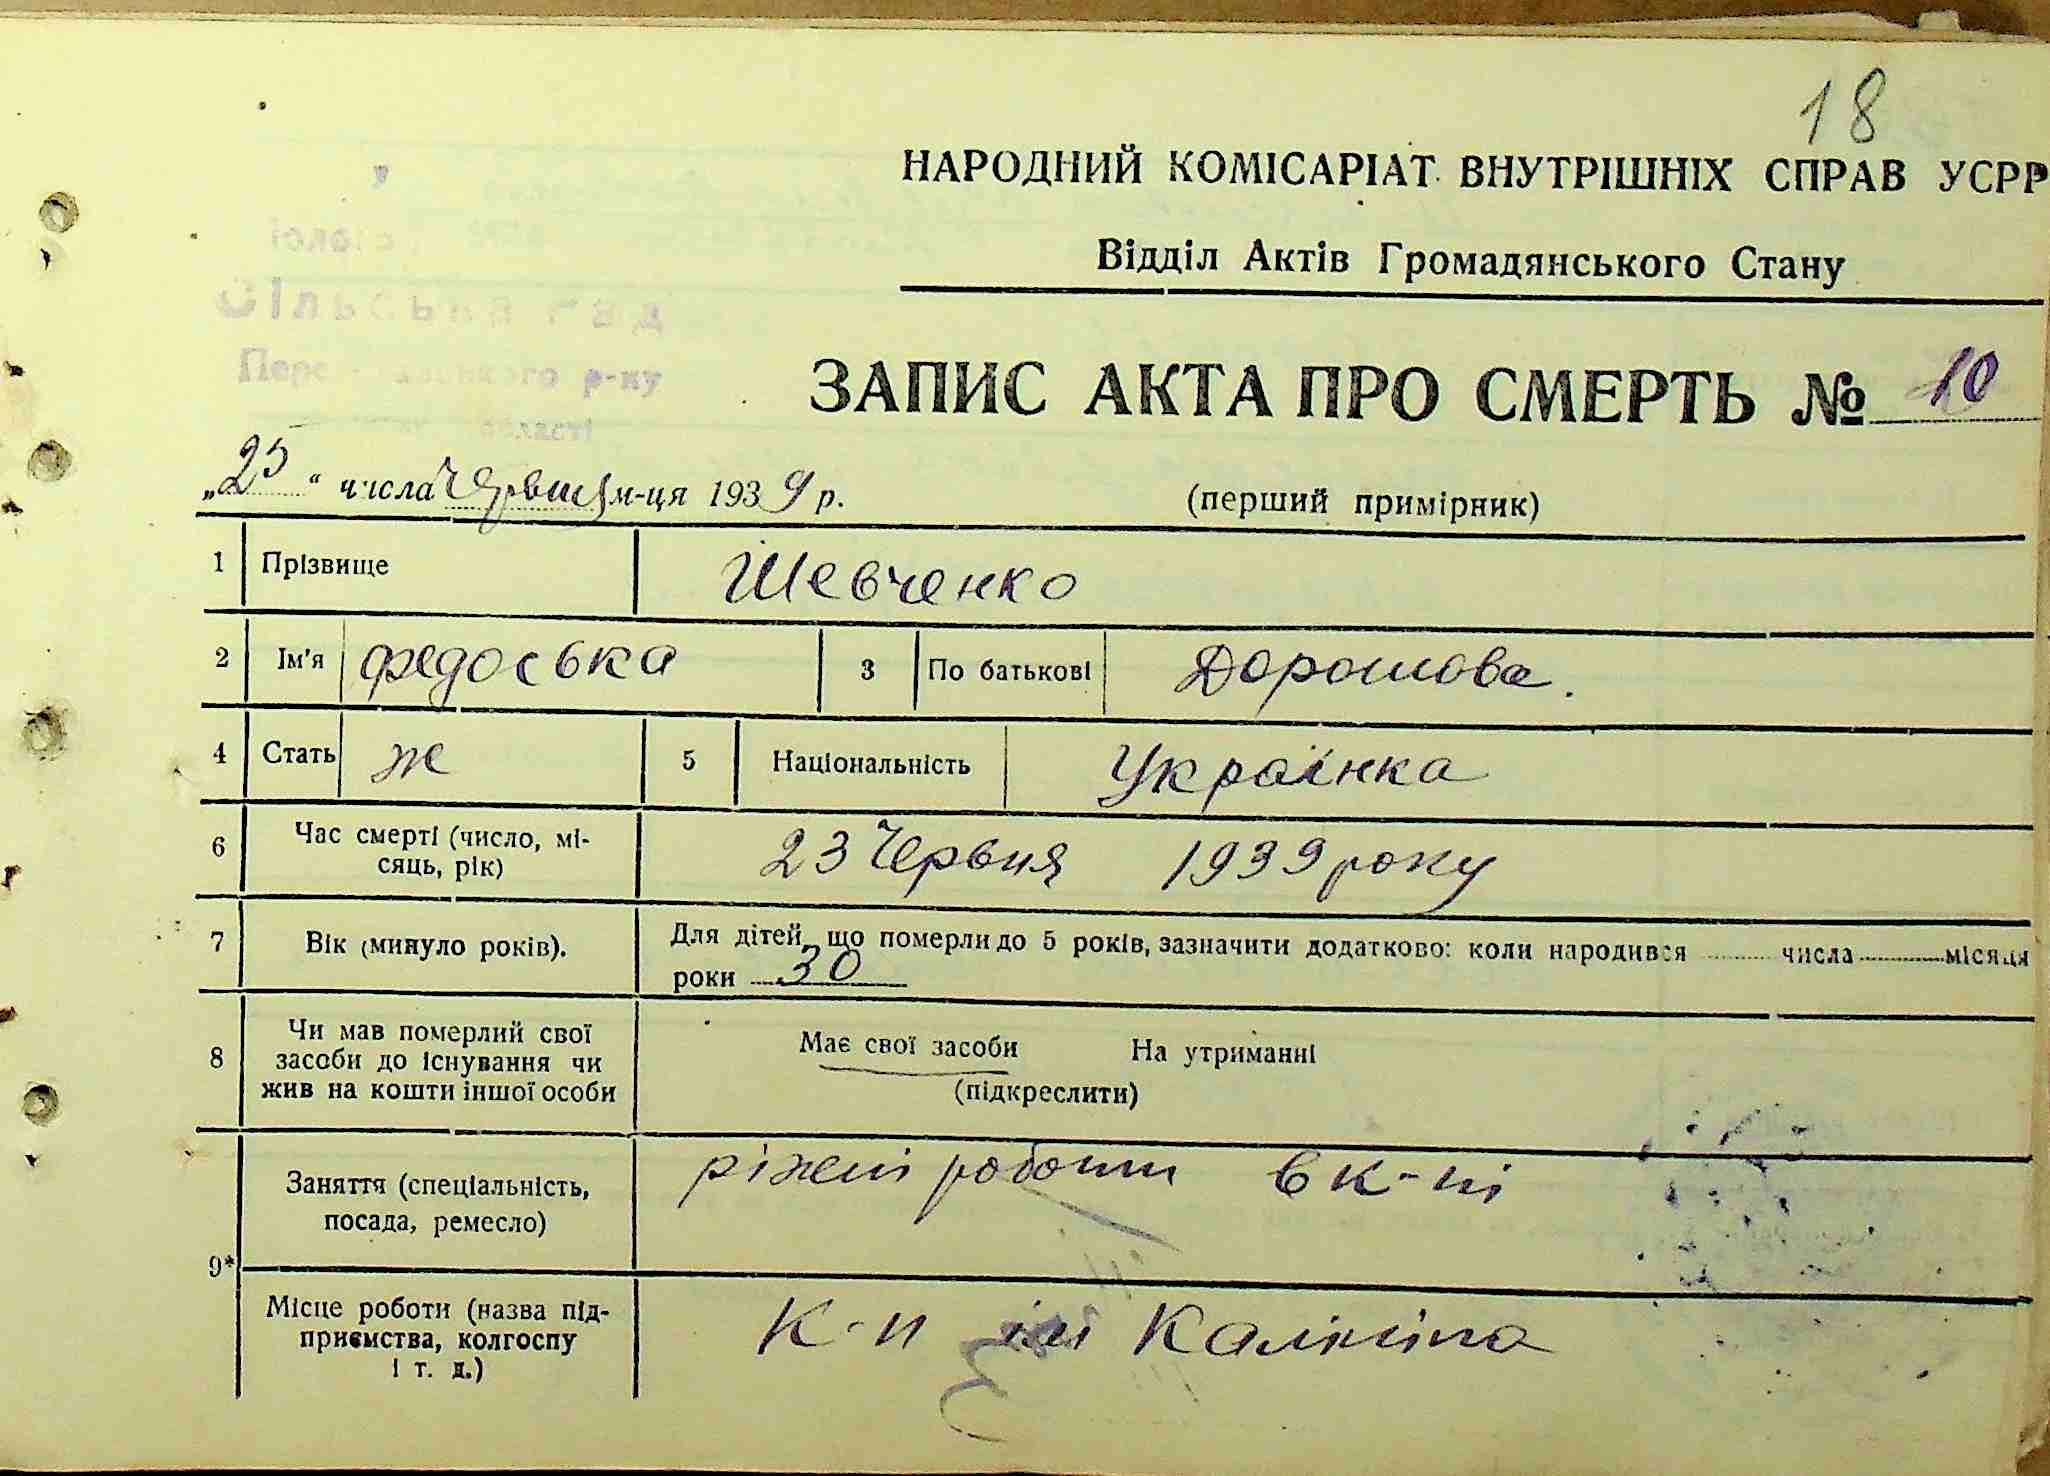 18
НАРОДНИЙ КОМІСАРІАТ ВНУТРІШНІХ СПРАВ УСРР
Відділ Актів Громадянського Стану
Сільська рад
р-ну
області
ЗАПИС АКТА ПРО СМЕРТЬ № 10
„25“ числа червня м-ця 1939 р. (перший примірник)
1 Прізвище Шевченко
2 Ім'я Федоська 3 По батькові Дорошова.
4 Стать ж 5 Національність Українка
6 Час смерті (число, мі-
сяць, рік) 23 Червня 1939 року
7 Вік (минуло років). Для дітей, що померли до 5 років, зазначити додатково: коли народився числа місяця
роки 30
8 Чи мав померлий свої
засоби до існування чи
жив на кошти іншої особи
Має свої засоби На утриманні
(підкреслити)
9* Заняття (спеціальність,
посада, ремесло) ріжні роботи в к-пі
Місце роботи (назва під-
приємства, колгоспу
і т. д.) К-п ім Калініна